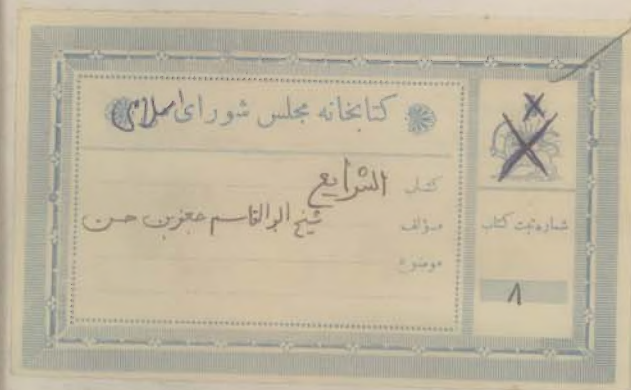 کتابخانه مجلس شورای اسلامی
کتاب الشرایع
مؤلف شیخ ابوالقاسم جعفر بن حسن
موضوع
شماره ثبت کتاب
۸